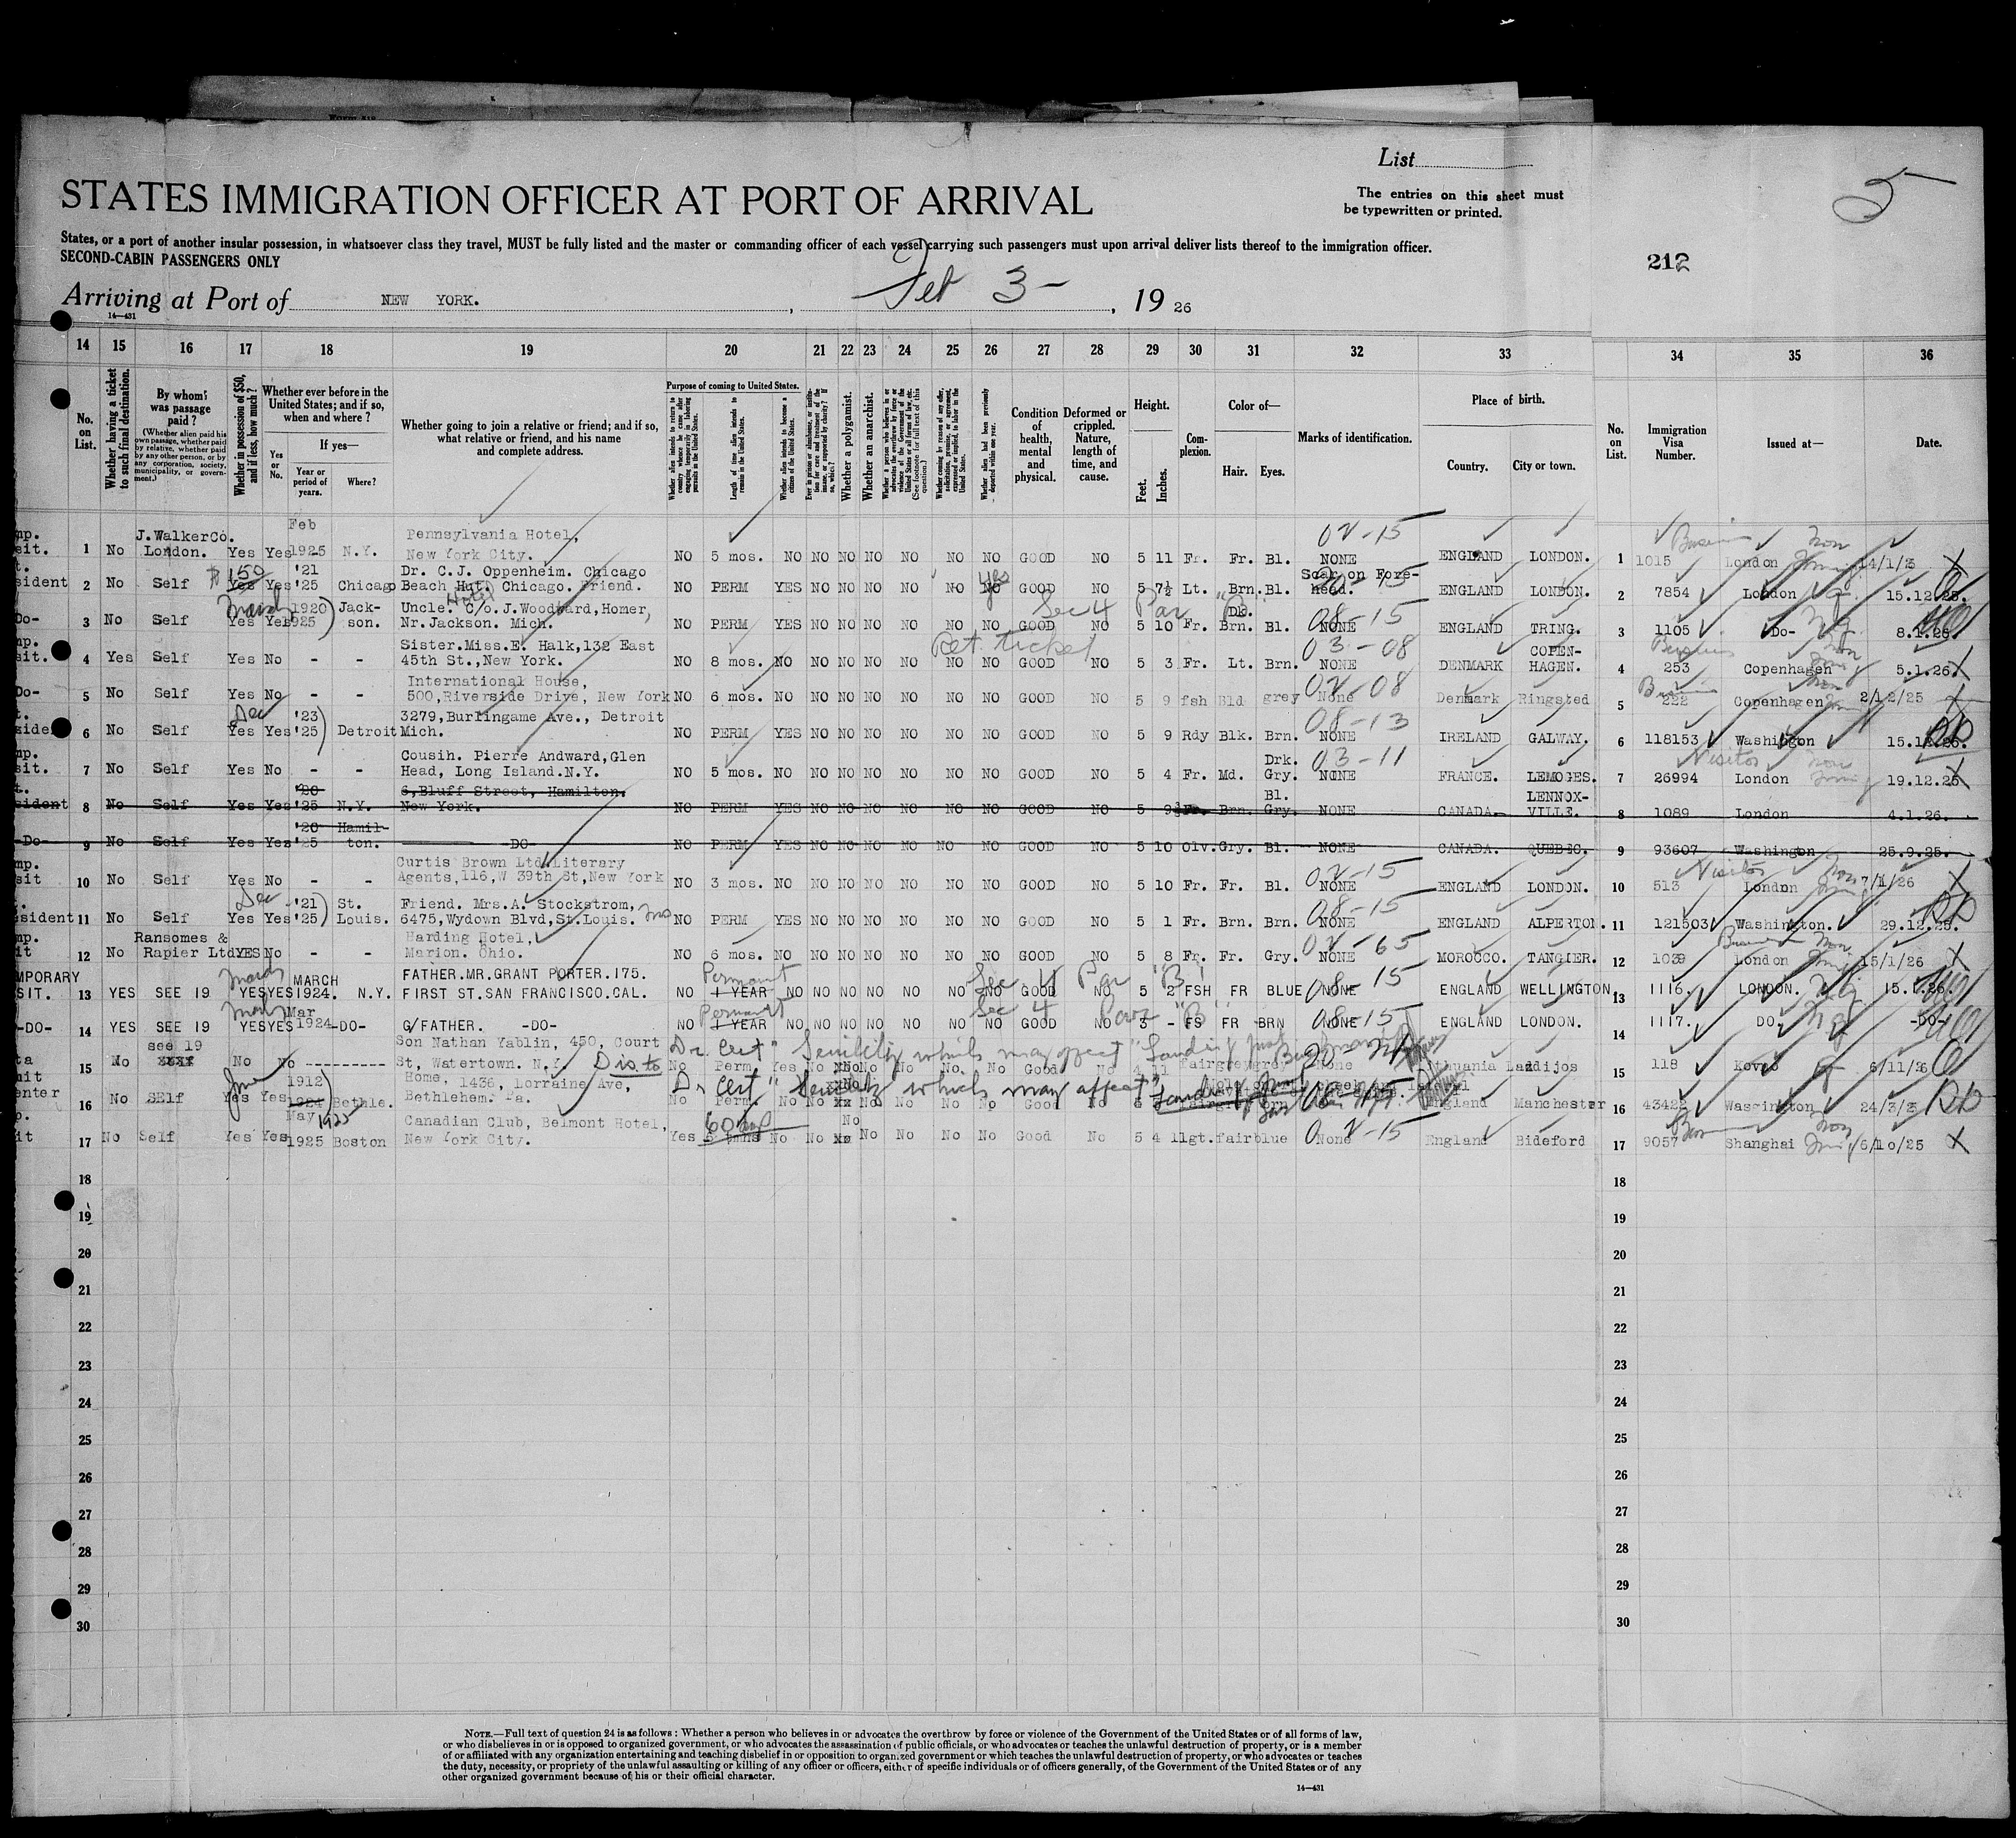 List
The entries on this sheet must
be typewritten or printed.
5
STATES IMMIGRATION OFFICER AT PORT OF ARRIVAL
States, or a port of another insular possession, in whatsoever class they travel, MUST be fully listed and the master or commanding officer of each vessel carrying such passengers must upon arrival deliver lists thereof to the immigration officer.
SECOND-CABIN PASSENGERS ONLY
212
Arriving at Port of NEW YORK. , Feb 3- , 19 26
14-431
14 15 16 17 18 19 20 21 22 23 24 25 26 27 28 29 30 31 32 33 34 35 36
No. on List.
Whether having a ticket to such final destination.
By whom was passage paid?
(Whether alien paid his own passage, whether paid by relative, whether paid by any other person, or by any corporation, society, municipality, or government.)
Whether in possession of $50, and if less, how much?
Whether ever before in the United States; and if so, when and where?
If yes—
Yes or No.
Year or period of years.
Where?
Whether going to join a relative or friend; and if so, what relative or friend, and his name and complete address.
Purpose of coming to United States.
Length of time alien intends to remain in the United States.
Whether alien intends to become a citizen of the United States.
Whether a polygamist.
Whether an anarchist.
Condition of health, mental and physical.
Deformed or crippled. Nature, length of time, and cause.
Height.
Feet. Inches.
Complexion.
Color of—
Hair. Eyes.
Marks of identification.
Place of birth.
Country. City or town.
No. on List.
Immigration Visa Number.
Issued at—
Date.
1 No J.WalkerCo. London. Yes Yes Feb 1925 N.Y. Pennsylvania Hotel, New York City. NO 5 mos. NO NO NO NO NO NO NO GOOD NO 5 11 Fr. Fr. Bl. NONE 02-15 ENGLAND LONDON. 1 1015 London 14/1/26
sident 2 No Self $150 Yes Yes '21 '25 Chicago Dr. C.J. Oppenheim. Chicago Beach Hut. Hotel Chicago. Friend. NO PERM YES NO NO NO NO NO NO yes GOOD NO 5 7½ Lt. Brn. Bl. Scar on Fore-head. ENGLAND LONDON. 2 7854 London 15.12.25.
Do- 3 No Self Yes Yes 1920 1925 Jack-son. Uncle. C/o.J.Woodward,Homer, Nr.Jackson. Mich. NO PERM YES NO NO NO NO NO NO GOOD NO Sec 4 5 10 Fr. Dk. Brn. Bl. NONE 08-15 ENGLAND TRING. 3 1105 Do- 8.1.26.
sit. 4 Yes Self Yes No - - Sister.Miss.E. Halk,132 East 45th St.,New York. NO 8 mos. NO NO NO NO NO NO NO Ret. ticket GOOD NO 5 3 Fr. Lt. Brn. NONE 03-08 DENMARK COPEN-HAGEN. 4 253 Copenhagen 5.1.26.
Do- 5 No Self Yes No - - International House, 500,Riverside Drive, New York NO 6 mos. NO NO NO NO NO NO NO GOOD NO 5 9 fsh Bld grey None 02-08 Denmark Ringsted 5 222 Copenhagen 2/12/25
6 No Self Dec Yes Yes '23 '25 Detroit 3279,Burlingame Ave., Detroit Mich. NO PERM YES NO NO NO NO NO NO GOOD NO 5 9 Rdy Blk. Brn. NONE 08-13 IRELAND GALWAY. 6 118153 Washington
sit. 7 No Self Yes No - - Cousin. Pierre Andward,Glen Head, Long Island.N.Y. NO 5 mos. NO NO NO NO NO NO NO GOOD NO 5 4 Fr. Md. Drk. Gry. NONE 03-11 FRANCE. LEMOGES. 7 26994 Visitor London 19.12.25
sident 8 No Self Yes Yes '20 '25 N.Y. 6,Bluff Street, Hamilton. New York. NO PERM YES NO NO NO NO NO NO GOOD NO 5 9½ Fr. Brn. Bl. Gry. NONE CANADA. LENNOX-VILLE. 8 1089 London 4.1.26.
-Do- 9 No Self Yes Yes '20 '25 Hamil-ton. -DO- NO PERM YES NO NO NO NO NO NO GOOD NO 5 10 Olv. Gry. Bl. NONE CANADA. QUEBEC. 9 93607 Washington 25.9.25.
sit 10 No Self Yes No - - Curtis Brown Ltd.Literary Agents,116,W 39th St,New York NO 3 mos. NO NO NO NO NO NO NO GOOD NO 5 10 Fr. Fr. Bl. NONE 02-15 ENGLAND LONDON. 10 513 Visitor London 7/1/26
sident 11 No Self Dec Yes Yes '21 '25 St. Louis. Friend. Mrs.A. Stockstrom, 6475,Wydown Blvd,St.Louis. Mo NO PERM YES NO NO NO NO NO NO GOOD NO 5 1 Fr. Brn. Brn. NONE 08-15 ENGLAND ALPERTON. 11 121503 Washington. 29.12.25.
it 12 No Ransomes & Rapier Ltd YES No - - Harding Hotel, Marion. Ohio. NO 6 mos. NO NO NO NO NO NO NO GOOD NO 5 8 Fr. Fr. Gry. NONE 02-65 MOROCCO. TANGIER. 12 1039 London 15/1/26
MPORARY SIT. 13 YES SEE 19 YES YES MARCH 1924. N.Y. FATHER.MR.GRANT PORTER.175. FIRST ST.SAN FRANCISCO.CAL. NO 1 YEAR Permant NO NO NO NO NO NO NO Sec 4 GOOD NO 5 2 FSH FR BLUE NONE 08-15 ENGLAND WELLINGTON 13 1116. LONDON.
-DO- 14 YES SEE 19 YES YES Mar 1924 -DO- G/FATHER. -DO- NO 1 YEAR Permant NO NO NO NO NO NO NO Sec 4 GOOD NO 3 - FS FR BRN NONE 08-15 ENGLAND LONDON. 14 1117. DO. -DO-
15 No see 19 No No Son Nathan Yablin, 450, Court St, Watertown. N.Y. Dr. Cert "Senility which may affect No Perm. Yes No No No No No No Good No 4 11 None Ladijos 15 118 Kovno
enter 16 No SElf Yes Yes 1912 1924 1925 Bethle. Home, 1436, Lorraine Ave, Bethlehem. Pa. Dr Cert "Senility which may affect" No Perm. No No No No No No Good No England Manchester 16 Washington
it 17 No Self Yes Yes May 1925 Boston Canadian Club, Belmont Hotel, New York City. Yes No No No No No No No Good No 5 4 lgt. fair blue None 02-15 England Bideford 17 9057 Shanghai 6/10/25
18 18
19 19
20 20
21 21
22 22
23 23
24 24
25 25
26 26
27 27
28 28
29 29
30 30
NOTE.—Full text of question 24 is as follows: Whether a person who believes in or advocates the overthrow by force or violence of the Government of the United States or of all forms of law,
or who disbelieves in or is opposed to organized government, or who advocates the assassination of public officials, or who advocates or teaches the unlawful destruction of property, or is a member
of or affiliated with any organization entertaining and teaching disbelief in or opposition to organized government or which teaches the unlawful destruction of property, or who advocates or teaches
the duty, necessity, or propriety of the unlawful assaulting or killing of any officer or officers, either of specific individuals or of officers generally, of the Government of the United States or of any
other organized government because of his or their official character.
14-431